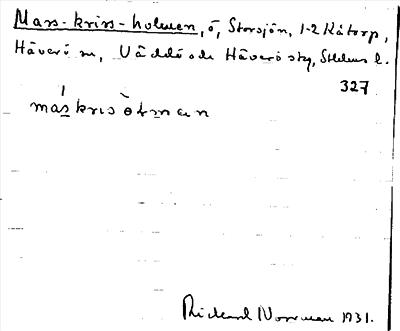 Mass-kriss-holmen, ö, Storsjön, 1-2 Kåtorp,
Häverö sn, Väddö och Häverö skg, Sthlms l.
327
máskrisòɫman
Rickard Norrman 1931.